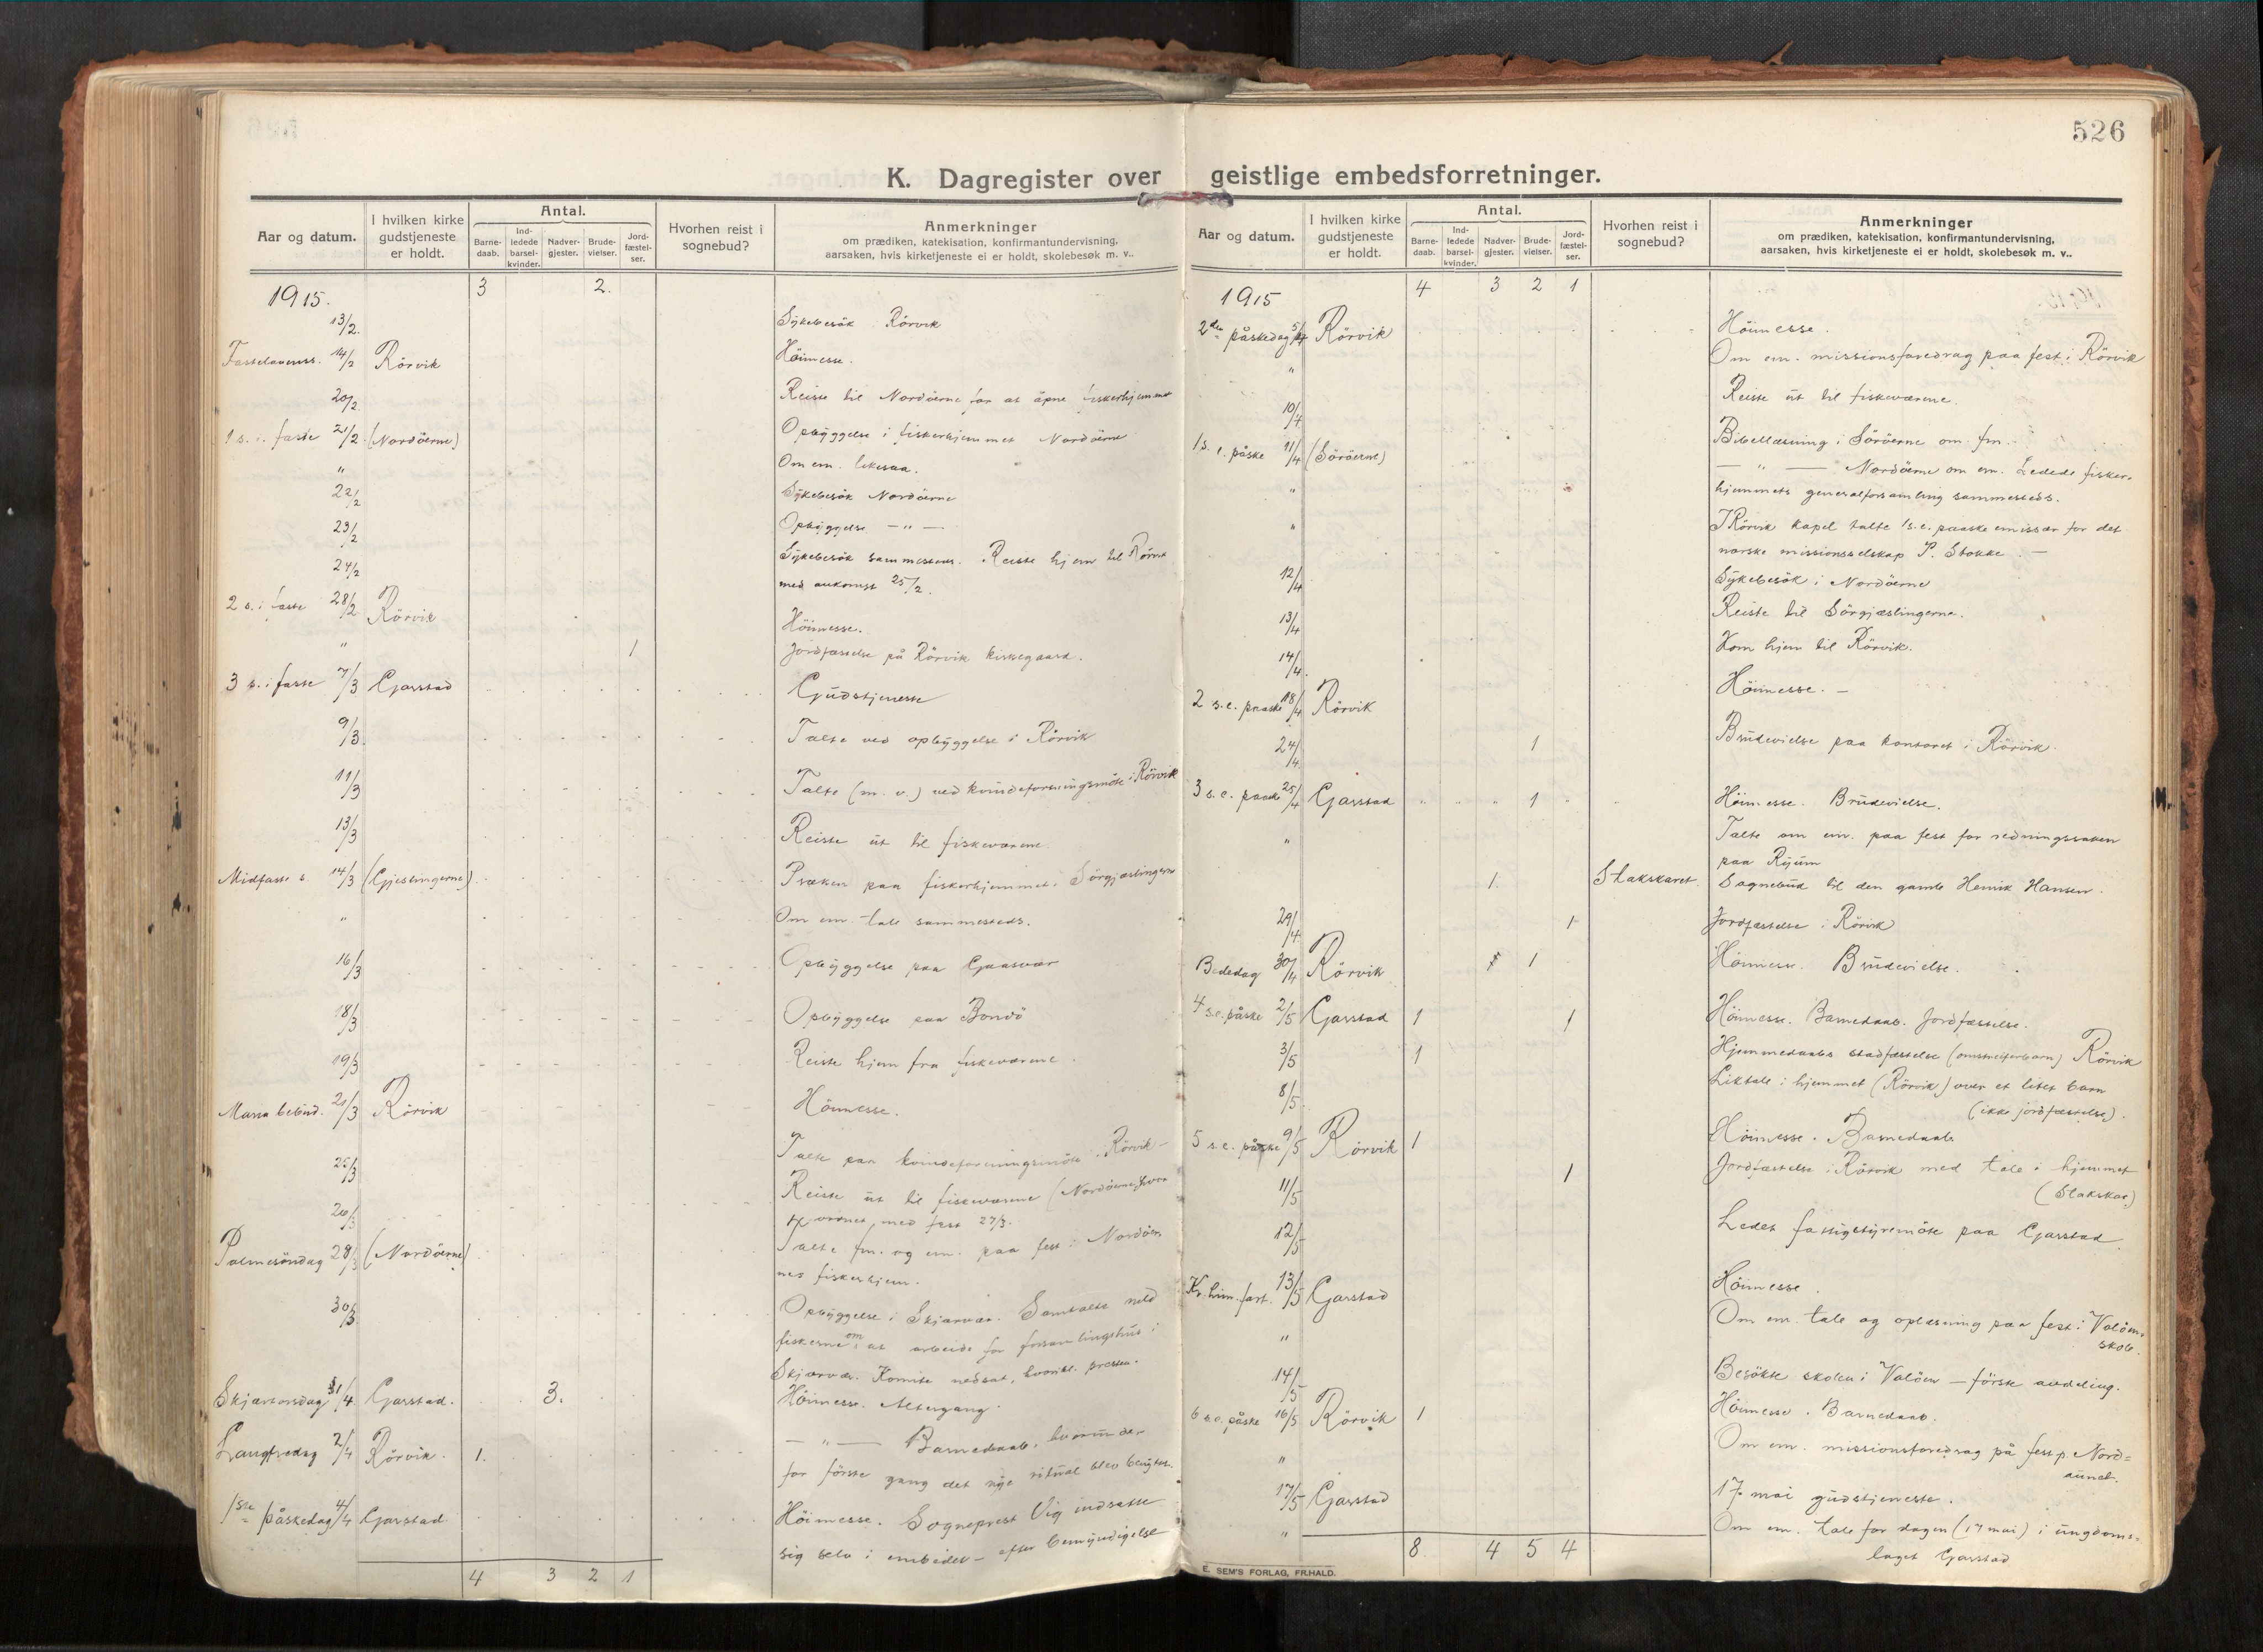 526
K. Dagregister over geistlige embedsforretninger.
Aar og datum. I hvilken kirke gudstjeneste er holdt. Antal. Barnedaab. Indledede barselkvinder. Nadvergjester. Brudevielser. Jordfæstelser. Hvorhen reist i sognebud? Anmerkninger om prædiken, katekisation, konfirmantundervisning, aarsaken, hvis kirketjeneste ei er holdt, skolebesøk m. v..
1915. 3 2.
13/2. Sykebesök Rörvik
Fastelavenss. 14/2 Rörvik Höimesse.
20/2 Reiste til Nordöerne for at åpne fiskerhjemmet
1 s. i. faste 21/2 (Nordöerne) Opbyggelse i fiskerhjemmet Nordöerne
" Om em. likesaa.
22/2 Sykebesök Nordöerne
23/2 Opbyggelse — " —
24/2 Sykebesök sammesteds. Reiste hjem til Rörvik
med ankomst 25/2.
2 s. i faste 28/2 Rörvik Höimesse.
" 1 Jordfæstelse på Rörvik kirkegaard.
3 s. i faste 7/3 Garstad Gudstjeneste
9/3. Talte ved opbyggelse i Rörvik
11/3 Talte (m. v.) ved kvindeforeningsmöte i Rörvik
13/3 Reiste ut til fiskeværene.
Midfaste s. 14/3 (Gjeslingerne) Præken paa fiskerhjemmet i Sörgjæslingerne
" Om em. tale sammesteds.
16/3 Opbyggelse paa Gaasvær
18/3 Opbyggelse paa Bondö
19/3 Reiste hjem fra fiskeværene.
Maria bebud. 21/3 Rörvik Höimesse.
25/3 Talte paa kvindeforeningsmöte i Rörvik —
26/3 Reiste ut til fiskeværene (Nordöerne, hvor
ordnet med fest 27/3.
Palmesöndag 28/3 (Nordöerne) Talte fm. og em. paa fest i Nordöer-
nes fiskerhjem.
30/3 Opbyggelse i Skjærvær. Samtalte med
fiskerne om at arbeide for forsamlingshus i
Skjærvær. Komite nedsat, hvoribl. presten.
Skjærtorsdag 1/4 Garstad. 3. Höimesse. Altergang.
Langfredag 2/4 Rörvik. 1. — " — Barnedaab, hvorunder
for förste gang det nye ritual blev benyttet.
1ste påskedag 4/4 Garstad Höimesse. Sogneprest Vig indsatte
sig selv i embedet — efter bemyndigelse
4 3 2 1
Aar og datum. I hvilken kirke gudstjeneste er holdt. Antal. Barnedaab. Indledede barselkvinder. Nadvergjester. Brudevielser. Jordfæstelser. Hvorhen reist i sognebud? Anmerkninger om prædiken, katekisation, konfirmantundervisning, aarsaken, hvis kirketjeneste ei er holdt, skolebesøk m. v..
1915 4 3 2 1
2den påskedag 5/4 Rörvik Höimesse.
" Om em. missionsforedrag paa fest i Rörvik
10/4 Reiste ut til fiskeværene.
1 s. e. påske 11/4 (Söröerne) Bibellæsning i Söröerne om fm.
" — " — Nordöerne om em. Ledede fisker-
hjemmets generalforsamling sammesteds.
" I Rörvik kapel talte 1 s. e. paaske emissær for det
norske missionsselskap P. Stokke. —
12/4 Sykebesök i Nordöerne
13/4 Reiste til Sörgjæslingerne.
14/4. Kom hjem til Rörvik.
2 s. e. paaske 18/4 Rörvik Höimesse. —
24/4 1 Brudevielse paa kontoret i Rörvik.
3 s. e. paaske 25/4 Garstad 1 Höimesse. Brudevielse.
" Talte om em. paa fest for redningssaken
paa Ryum
1. Stakskaret. Sognebud til den gamle Henrik Hansen.
29/4 1 Jordfæstelse i Rörvik
Bededag 30/4 Rörvik 1 Höimesse. Brudevielse.
4 s. e. påske 2/5 Garstad 1 1 Höimesse. Barnedaab. Jordfæstelse.
3/5 1 Hjemmedaabs stadfæstelse (omstreiferbarn) Rörvik
8/5. Liktale i hjemmet (Rörvik) over et litet barn
(ikke jordfæstelse).
5 s. e. påske 9/5 Rörvik 1 Höimesse. Barnedaab
11/5 1 Jordfæstelse i Rörvik med tale i hjemmet
(Stakskar.)
12/5 Ledet fattigstyremöte paa Garstad.
Kr. him. fart. 13/5 Garstad Höimesse.
" Om em. tale og oplæsning paa fest i Valöen
skole.
14/5 Besökte skolen i Valöen — förste avdeling.
6 s. e. påske 16/5 Rörvik 1 Höimesse. Barnedaab.
" Om em. missionsforedrag på fest p. Nord-
aunet.
17/5 Garstad 17. mai gudstjeneste.
" Om em. tale for dagen (17 mai) i ungdoms-
laget Garstad
8 4 5 4
E. SEM'S FORLAG, FR.HALD.